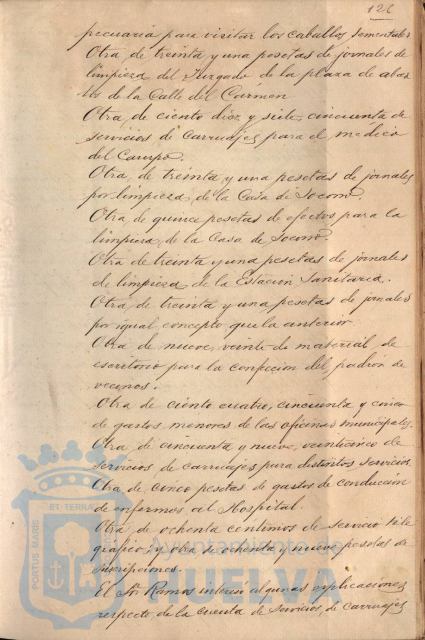 126
pecuaria para visitar los caballos sementales
Otra de treinta y una pesetas de jornales de
limpieza del Juzgado de la plaza de abas
tos de la Calle del Carmen
Otra de ciento diez y siete, cincuenta de
servicios de carruajes para el medico
del Campo.
Otra, de treinta y una pesetas de jornales
por limpieza, de la Casa de Socorro.
Otra de quince pesetas de efectos para la
limpieza, de la Casa de Socorro.
Otra de treinta y una pesetas de jornales
de limpieza de la Estación Sanitaria.
Otra de treinta y una pesetas de jornales
por igual concepto que la anterior
Otra de nueve, veinte de material de
escritorio para la confeccion del padrón de
vecinos.
Otra de ciento cuatro, cincuenta y cinco
de gastos menores de las oficinas municipales.
Otra de cincuenta y nueve, veinticinco de
servicios de carruajes para distintos servicios
Otra de cinco pesetas de gastos de conducción
de enfermos al Hospital.
Otra de ochenta centimos de servicio tele
grafico, y otra de ochenta y nueve pesetas de
suscripciones.
El Sr. Ramos interesó algunas explicaciones
respecto, de la cuenta de servicios de carruajes
PORTUS MARIS ET TERRAE
Ayuntamiento de
HUELVA